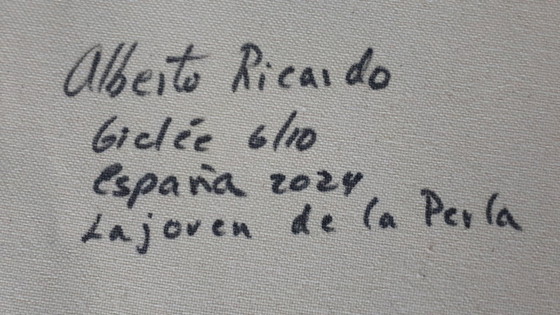 Alberto Ricardo
Giclée 6/10
españa 2024
La joven de la Perla